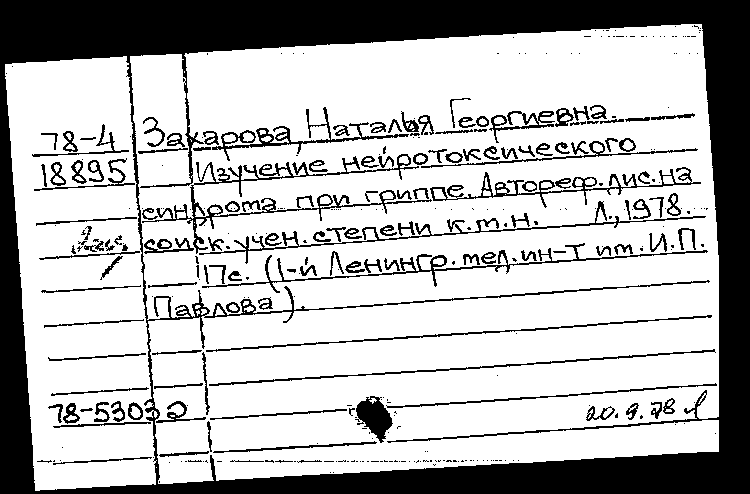 78-4 Захарова, Наталья Георгиевна.
18895 Изучение нейротоксического
синдрома при гриппе. Автореф. дис. на
соиск. учен. степени к.м.н. Л., 1978.
17с. (1-й Ленингр. мед. ин-т им. И.П.
Павлова).
78-53032 20.9.78